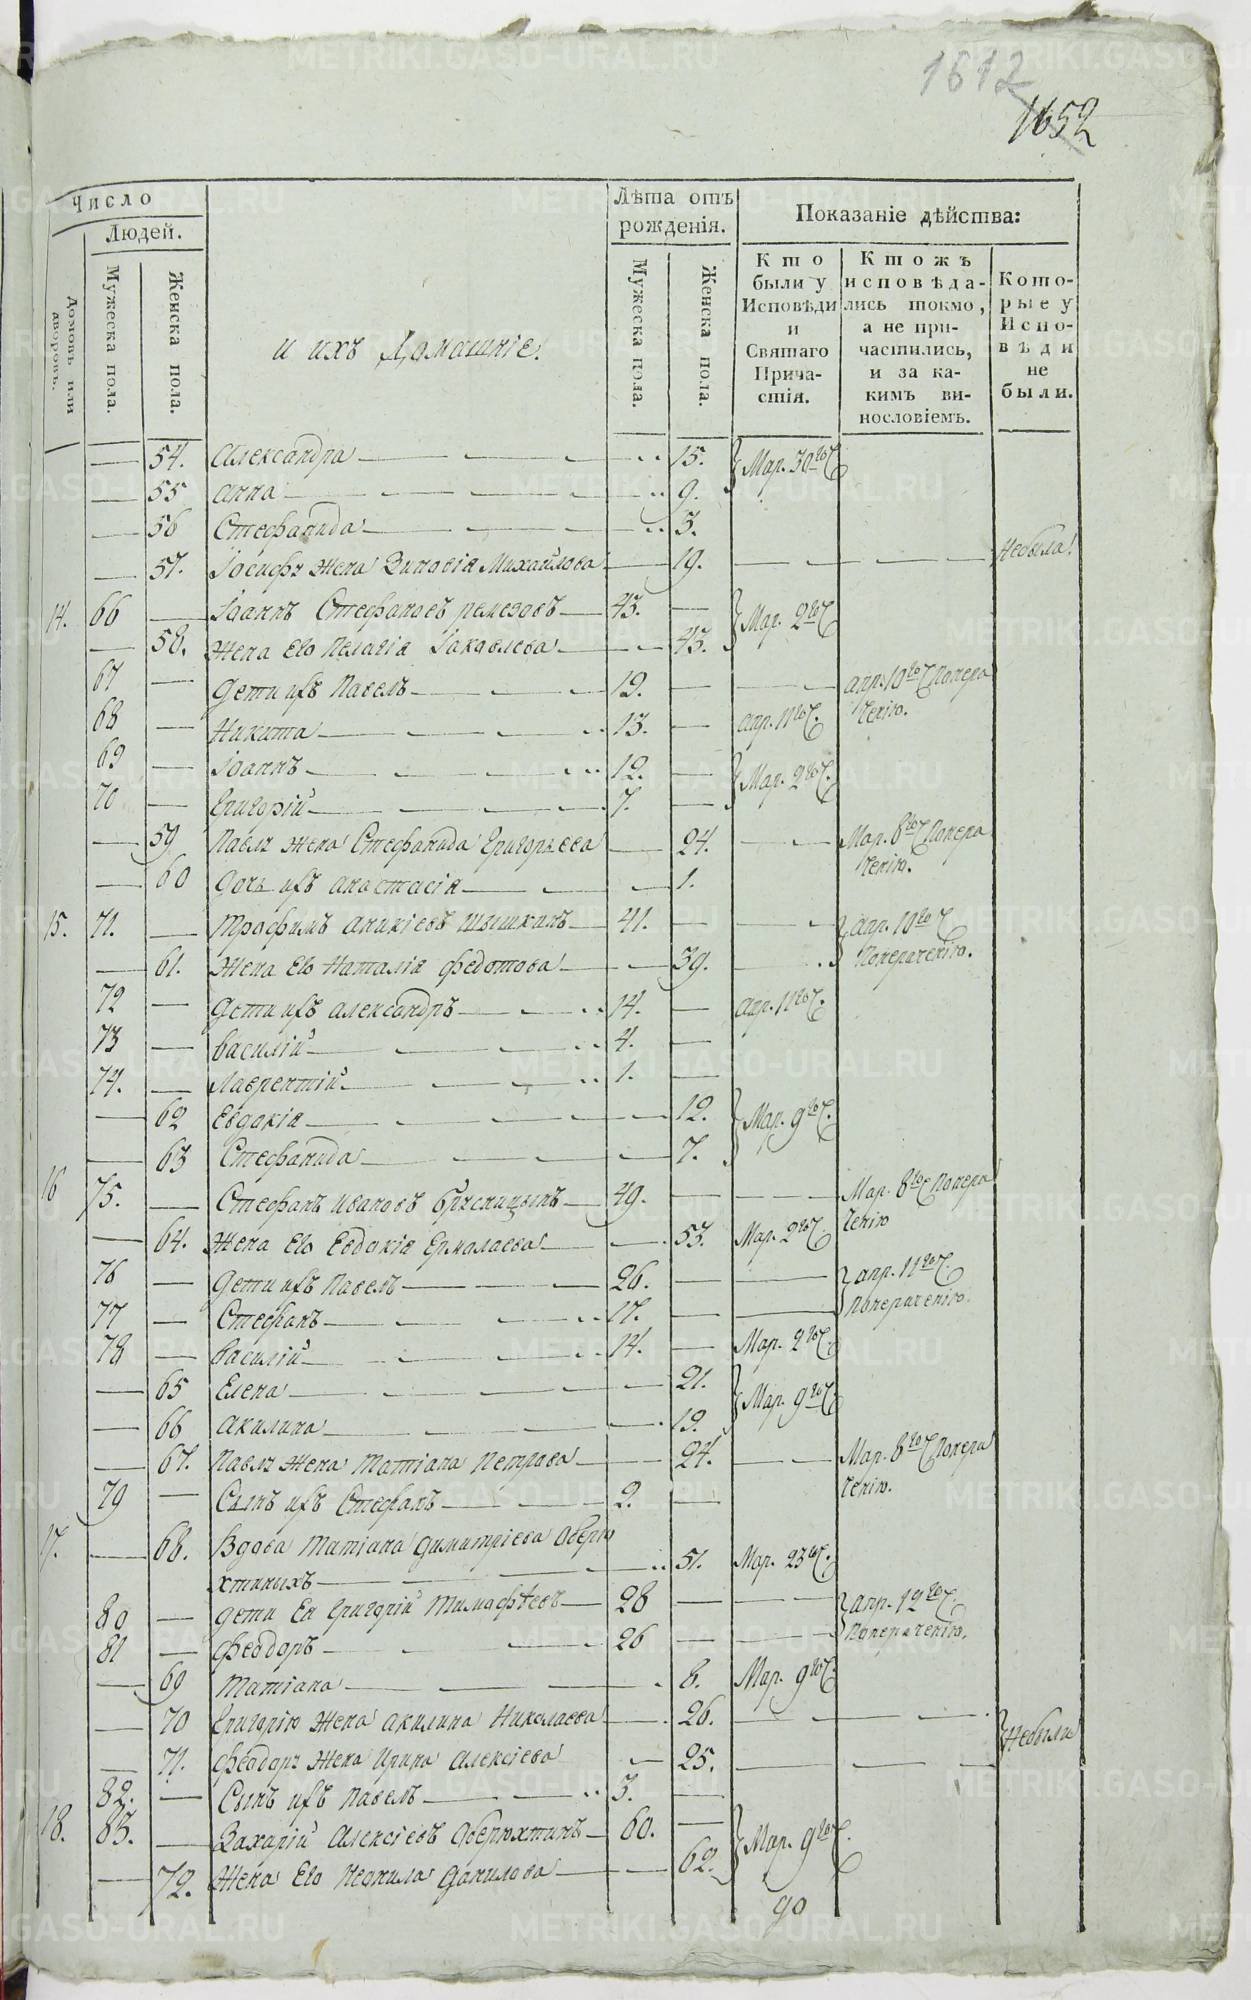 1612
1652
Число
Людей.
домовъ или дворовъ.
Мужеска пола.
Женска пола.
и ихъ Домашніе.
Лѣта отъ рожденія.
Мужеска пола.
Женска пола.
Показаніе дѣйства:
Кто были у Исповѣди и Святаго Причастія.
Ктожъ исповѣдались токмо, а не причастились, и за какимъ винословіемъ.
Которые у Исповѣди не были.
54. Александра 15. Мар. 30го Ч
55 Анна 9.
56 Стефанида 3.
57. Іосифа жена Зиновія Михайлова 19. Небыла
14. 66 Іоаннъ Стефановъ Ремезовъ 43. Мар. 2го Ч
58. Жена Его Пелагія Іаковлева 43.
67 Дети ихъ Павелъ 19. Апр. 10го Ч Попера
68 Никита 13. Апр. 11го Ч. ченію.
69 Іоаннъ 12. Мар. 2го Ч.
70 Григорій 7.
59 Павла жена Стефанида Григорьева 24. Мар. 8го Ч Попера
60 Дочь ихъ Анастасія 1. ченію.
15. 71. Трофимъ Аникіевъ Шышкинъ 41. Апр. 10го Ч
61. Жена Его Наталія Федотова 39. Поперачению.
72 Дети ихъ Александръ 14. Апр. 11го Ч.
73 Василій 4.
74. Лаврентій 1.
62 Евдокія 12. Мар. 9го Ч.
63 Стефанида 7.
16 75. Стефанъ Ивановъ Брусницынъ 49. Мар. 8го Ч Попера
64. Жена Его Евдокія Ермолаева 53. Мар. 2го Ч. ченію
76 Дети ихъ Павелъ 26. Апр. 11го Ч.
77 Стефанъ 17. Поперачению.
78 Василій 14. Мар. 2го Ч.
65 Елена 21. Мар. 9го Ч.
66 Акилина 19.
67. Павла жена Татіана Петрова 24. Мар. 8го Ч Попера
79 Сынъ ихъ Стефанъ 2. ченію.
17. 68. Вдова Татіана Димитріева Оверю
хтиныхъ 51. Мар. 23го Ч.
80 Дети Ея Григорій Тимофѣевъ 28 Апр. 12го Ч.
81 Феодоръ 26 Поперачению.
69 Татіана 8. Мар. 9го Ч.
70 Григорію жена Акилина Николаева 26. Небыли
71. Феодора жена Ирина Алексіева 25.
82. Сынъ ихъ Павелъ 3.
18. 83. Захарій Алексіевъ Оверюхтинъ 60. Мар. 9го Ч.
72. Жена Его Неонила Данилова 62.
90
METRIKI.GASO-URAL.RU